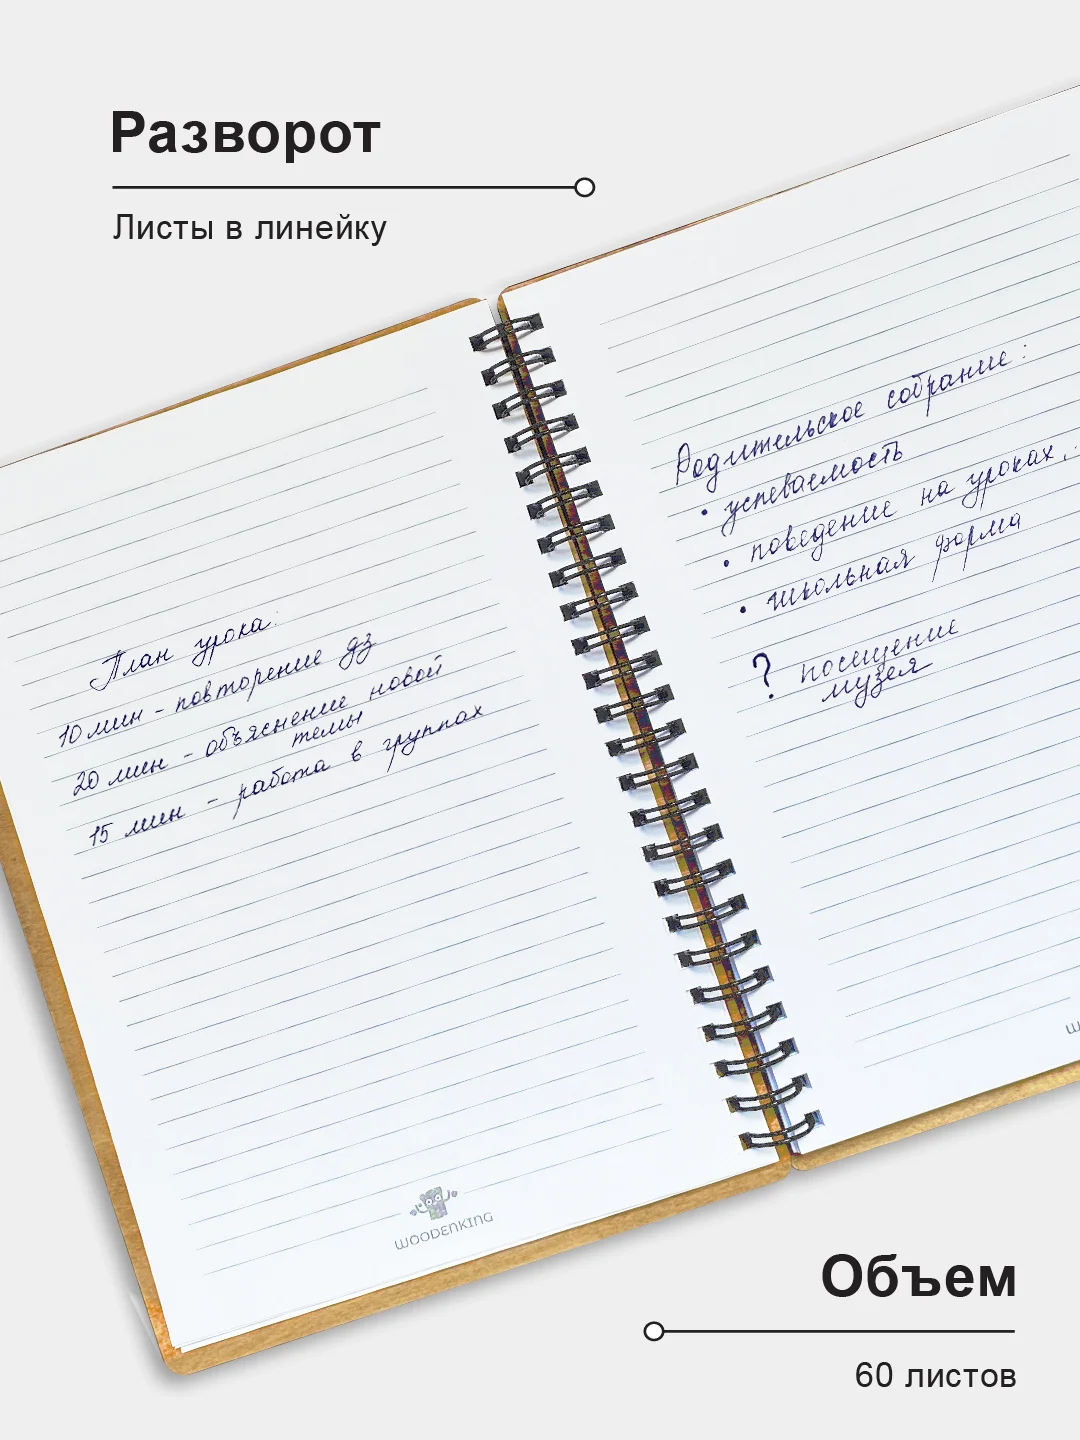 Разворот
Листы в линейку
План урока:
10 мин - повторение дз
20 мин - объяснение новой
темы
15 мин - работа в группах
WOODENKING
Родительское собрание:
• успеваемость
• поведение на уроках,
• школьная форма
? посещение
музея
W
Объем
60 листов